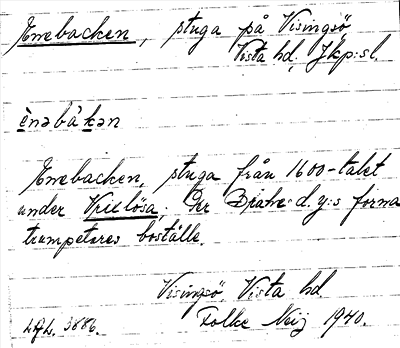 Enebacken, stuga på Visingsö
Vista hd, Jkp:s l.
ènəbàkən
Enebacken, stuga från 1600-talet
under Vretlösa, Per Brahe d. y:s forna
trumpetares boställe.
Visingsö, Vista hd.
Folke Neij 1940.
3886.